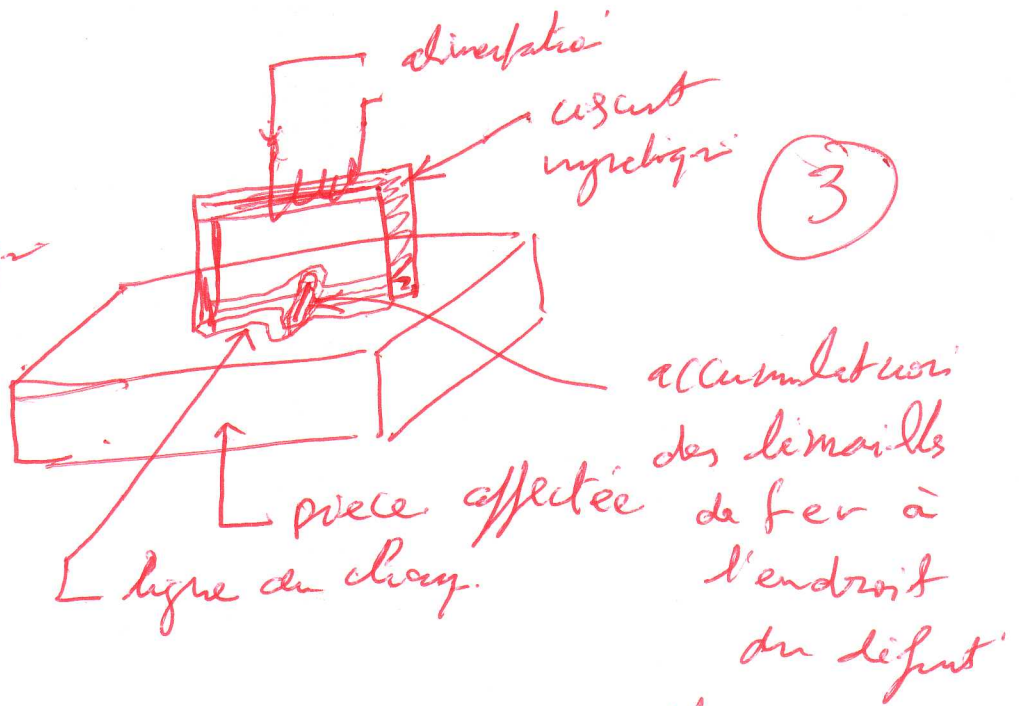 alimentation
circuit
magnétique
3
accumulation
des limailles
de fer à
l'endroit
du défaut
pièce affectée
ligne du champ.